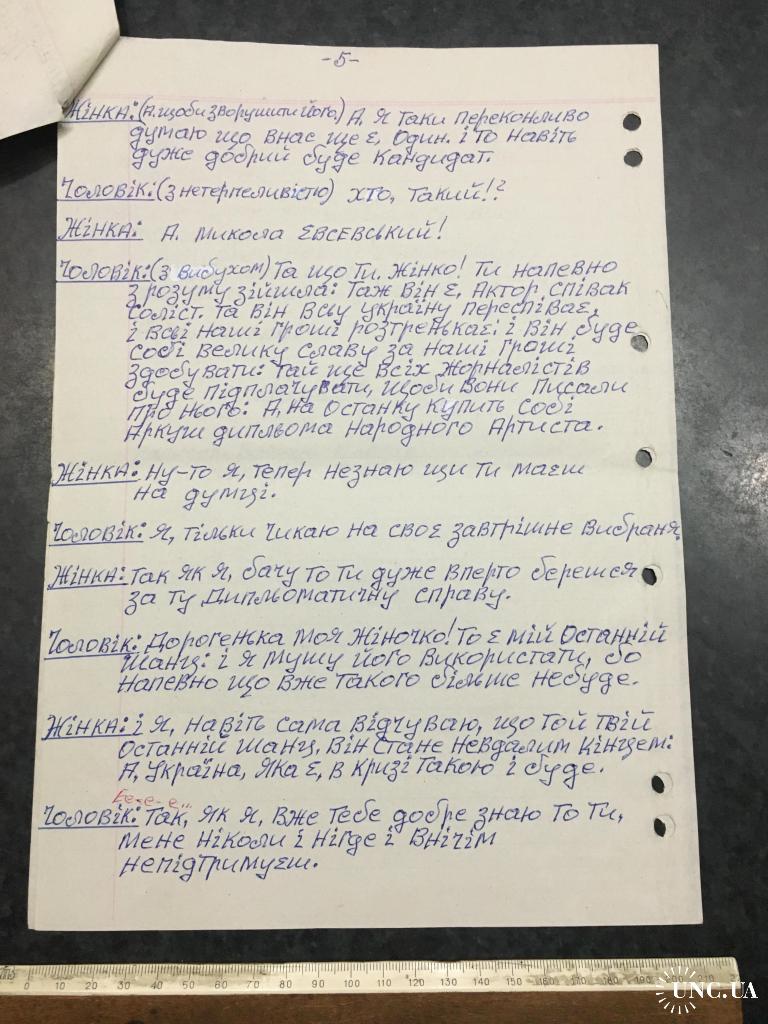 -5-
Жінка: (А. щоби зворушити його) А, я таки переконливо
думаю що внас ще є, один. і то навіть
дуже добрий буде кандидат.
Чоловік: (з нетерпеливістю) хто, такий!?
Жінка: А. Микола Евсевський!
Чоловік: (з вибухом) Та що ти, жінко! Ти напевно
з розуму зійшла: Таж він є, Актор співак
соліст. Та він всьу україну переспіває,
і всві наші гроші розтренькає: і він буде
собі велику славу за наші гроші
здобувати: Тай ще всіх жорналістів
буде підплачувати, щоби вони писали
про нього: А, на останку купить собі
Аркуш дипльома Народного Артиста.
Жінка: Ну-то я, тепер незнаю щи ти маєш
на думці.
Чоловік: Я, тільки чикаю на своє завтрішне вибраня,
Жінка: Так як я, бачу то ти дуже вперто берешся
за ту дипльоматичну справу.
Чоловік: Дорогенжка моя жіночко! То є мій останній
шанц: і я мушу його використати, бо
напевно що вже такого більше небуде.
Жінка: і я, навіть сама відчуваю, що той твій
останній шанц, він стане невдалим кінцем:
А, Україна, яка є, в кризі такою і буде.
Ее-е-е...
Чоловік: Так, як я, вже тебе добре знаю то ти,
мене ніколи і нігде і внічім
непідтримуєш.
0 10 20 30 40 50 60 70 80 90 100 110 120 130 140 150 160 170 180 190 200 210
UNC.UA